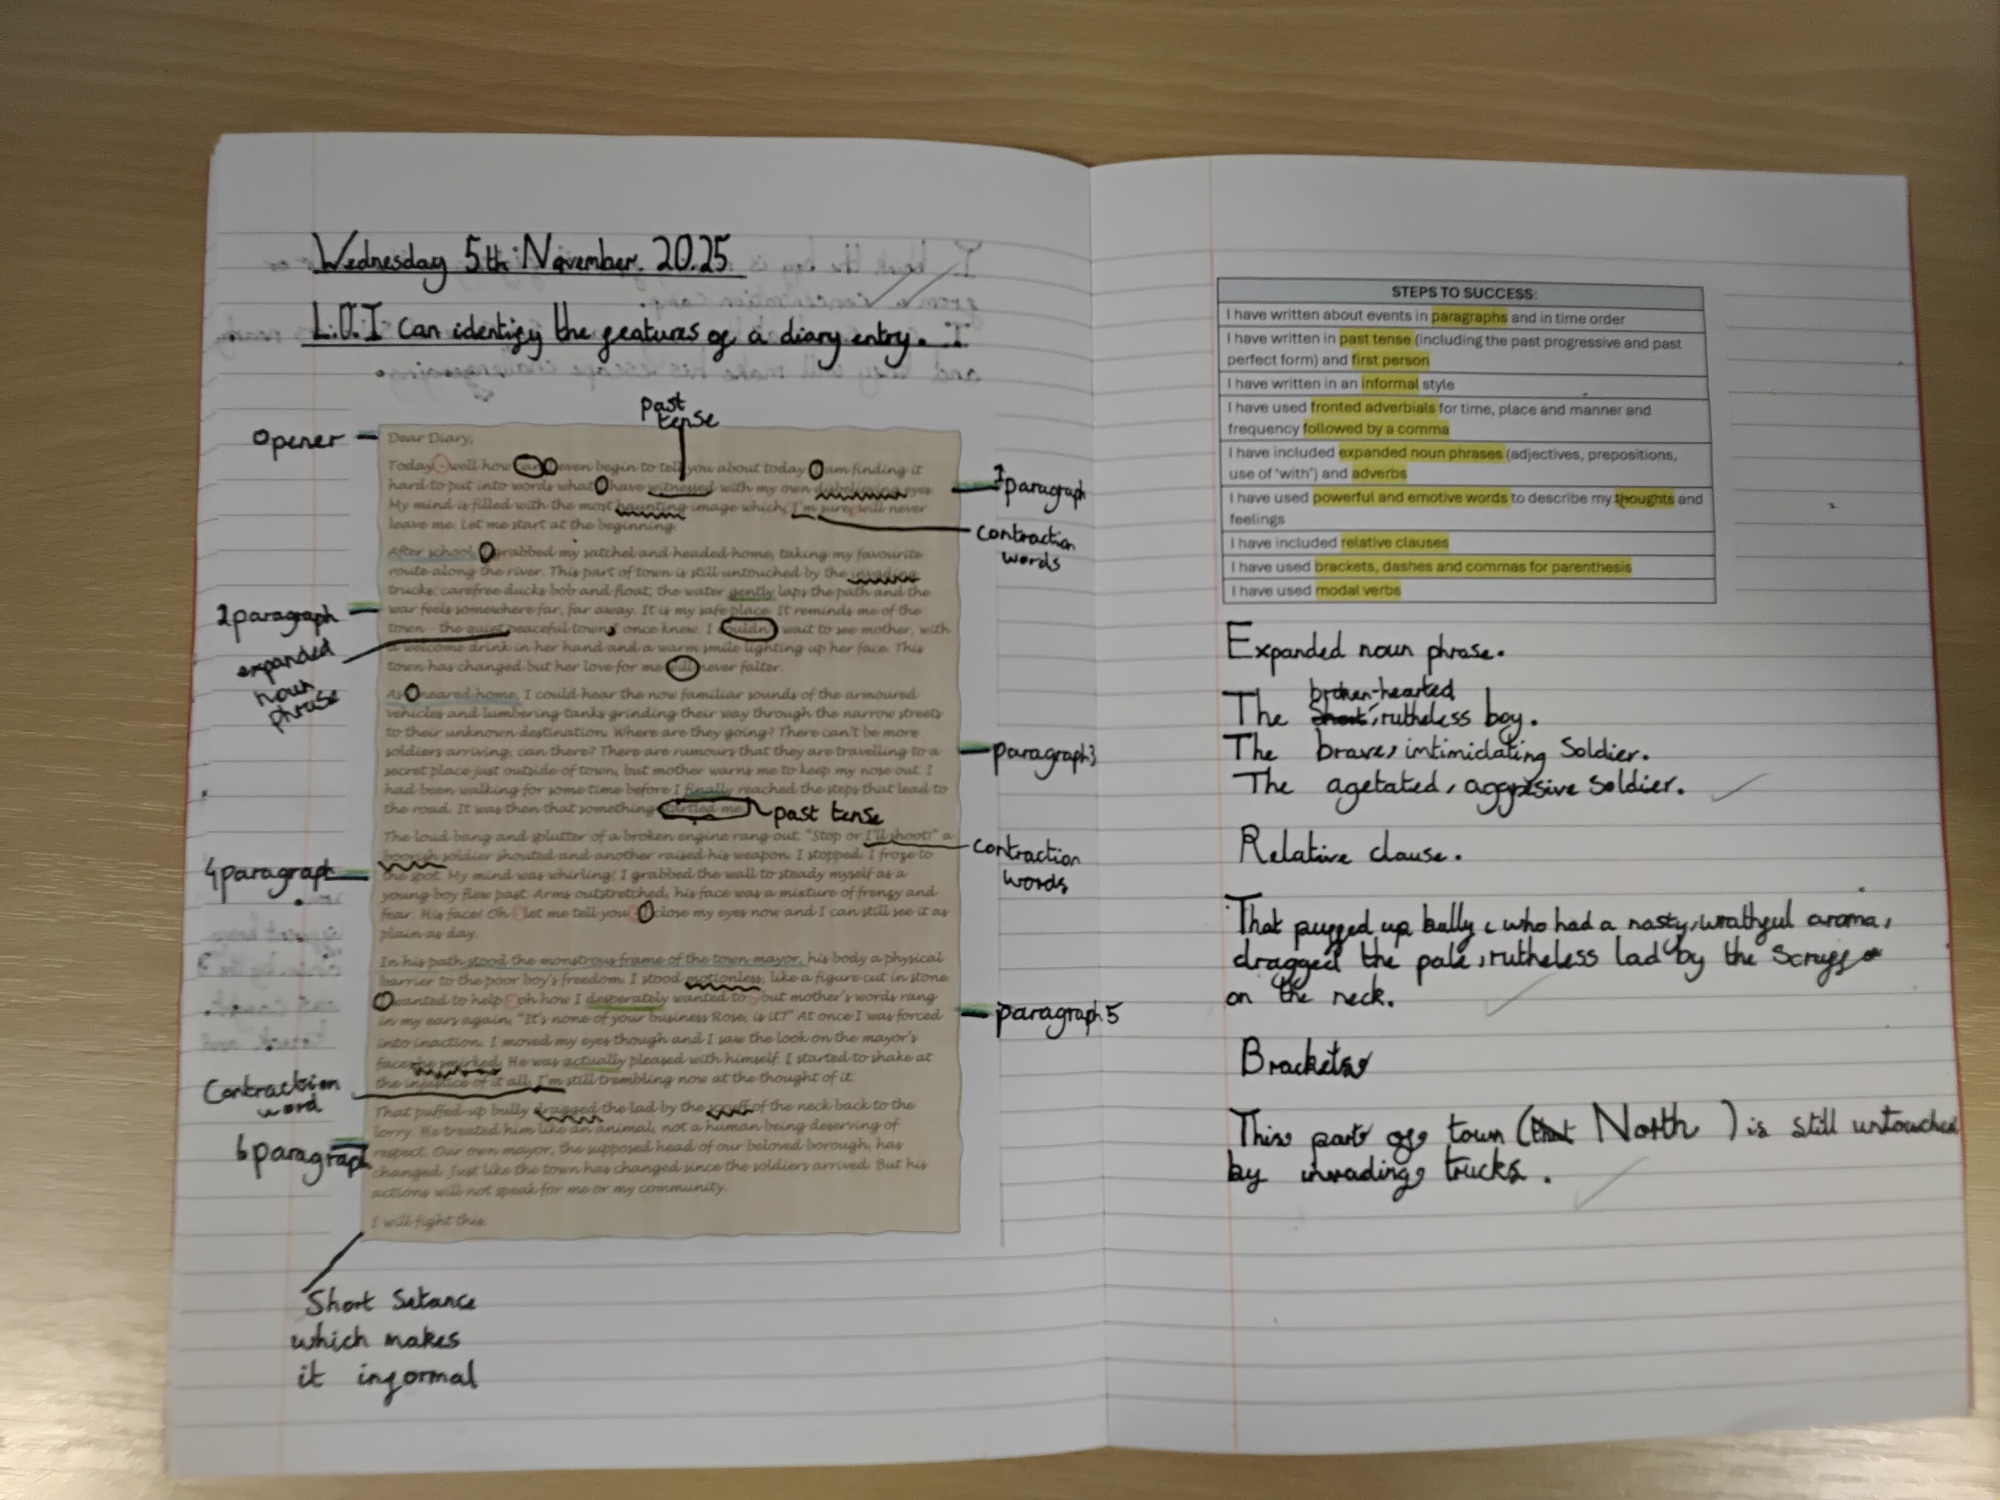 Wednesday 5th November 2025
L.O.I can identify the features of a diary entry.
past
tense
Opener
Dear Diary,
Today - well how can I even begin to tell you about today I am finding it
hard to put into words what I have witnessed with my own disbelieving eyes.
My mind is filled with the most haunting image which, I'm sure, will never
leave me. Let me start at the beginning.
1 paragraph
contraction
words
After school, I grabbed my satchel and headed home, taking my favourite
route along the river. This part of town is still untouched by the invading
trucks: carefree ducks bob and float; the water gently laps the path and the
war feels somewhere far, far away. It is my safe place. It reminds me of the
town - the quiet peaceful town I once knew. I couldn't wait to see mother, with
a welcome drink in her hand and a warm smile lighting up her face. This
town has changed but her love for me will never falter.
2 paragraph
expanded
noun
phrase
As I neared home, I could hear the now familiar sounds of the armoured
vehicles and lumbering tanks grinding their way through the narrow streets
to their unknown destination. Where are they going? There can't be more
soldiers arriving, can there? There are rumours that they are travelling to a
secret place just outside of town, but mother warns me to keep my nose out. I
had been walking for some time before I finally reached the steps that lead to
the road. It was then that something startled me.
paragraph 3
past tense
The loud bang and splutter of a broken engine rang out. "Stop or I'll shoot!" a
boorish soldier shouted and another raised his weapon. I stopped. I froze to
the spot. My mind was whirling; I grabbed the wall to steady myself as a
young boy flew past. Arms outstretched, his face was a mixture of frenzy and
fear. His face! Oh - let me tell you - I close my eyes now and I can still see it as
plain as day.
4 paragraph
contraction
words
In his path stood the monstrous frame of the town mayor, his body a physical
barrier to the poor boy's freedom. I stood motionless, like a figure cut in stone.
I wanted to help - oh how I desperately wanted to - but mother's words rang
in my ears again, "It's none of your business Rose, is it?" At once I was forced
into inaction. I moved my eyes though and I saw the look on the mayor's
face: he smirked. He was actually pleased with himself. I started to shake at
the injustice of it all. I'm still trembling now at the thought of it.
paragraph 5
Contracksion
word
That puffed-up bully dragged the lad by the scruff of the neck back to the
lorry. He treated him like an animal, not a human being deserving of
respect. Our own mayor, the supposed head of our beloved borough, has
changed. Just like the town has changed since the soldiers arrived. But his
actions will not speak for me or my community.
6 paragraph
I will fight this.
Short Setance
which makes
it informal
STEPS TO SUCCESS:
I have written about events in paragraphs and in time order
I have written in past tense (including the past progressive and past
perfect form) and first person
I have written in an informal style
I have used fronted adverbials for time, place and manner and
frequency followed by a comma
I have included expanded noun phrases (adjectives, prepositions,
use of 'with') and adverbs
I have used powerful and emotive words to describe my thoughts and
feelings
I have included relative clauses
I have used brackets, dashes and commas for parenthesis
I have used modal verbs
Expanded noun phrase.
broken-hearted
The short, rutheless boy.
The brave, intimidating Soldier.
The agetated, aggresive Soldier.
Relative clause.
That puffed up bully, who had a nasty, wrathful aroma,
dragged the pale, rutheless lad by the Scruff
on the neck.
Brackets
This part of town (that North) is still untouched
by invading trucks.